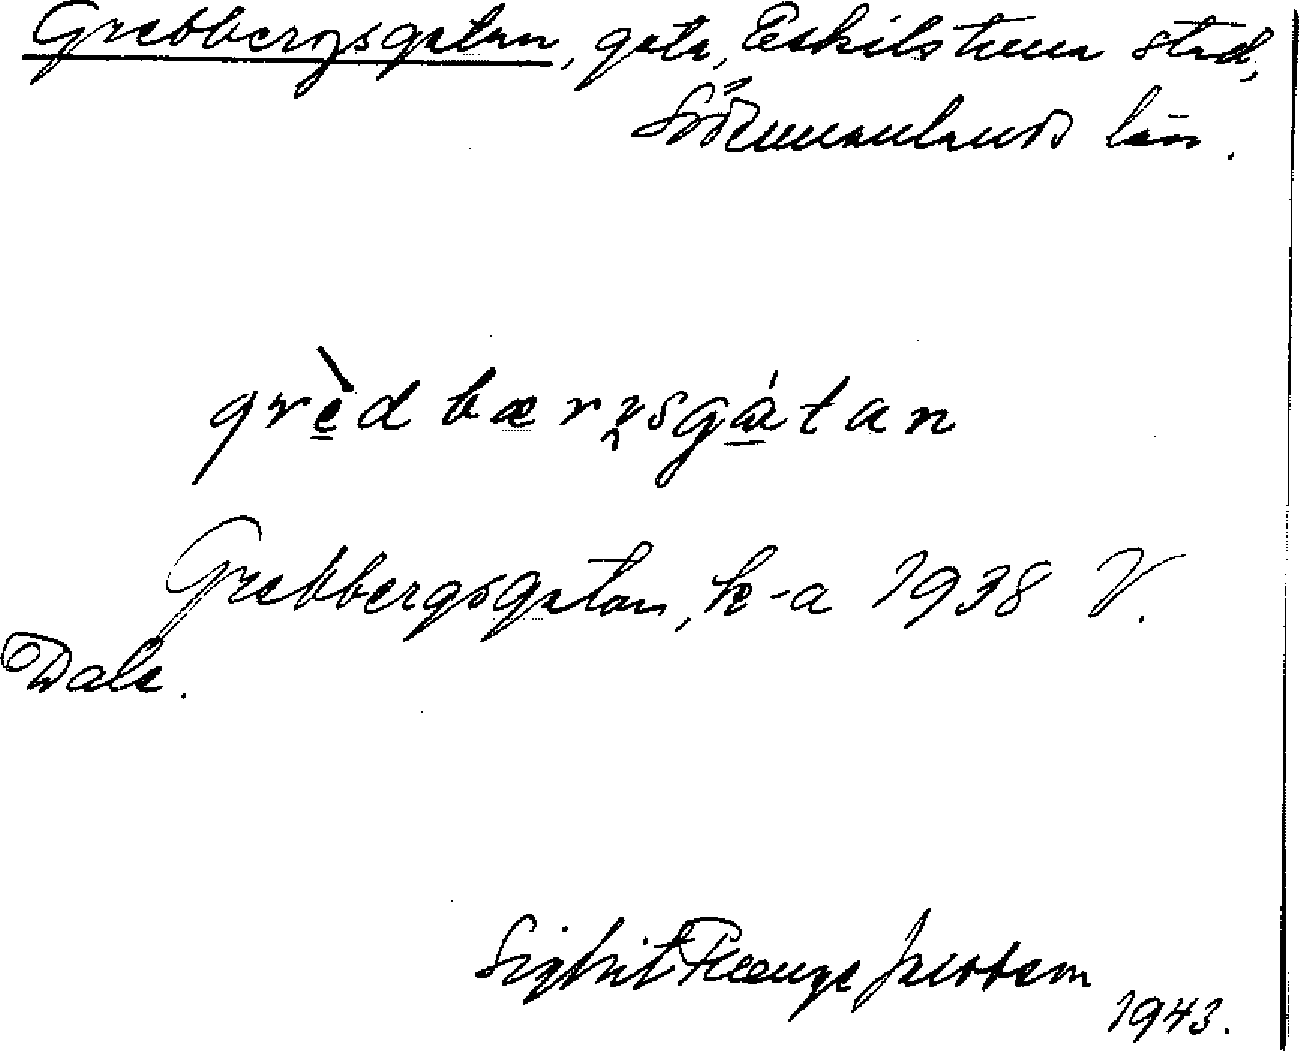 Grebbergsgatan, gata, Eskilstuna stad,
Södermanlands län.
grèd bærgsgátan
Grebbergsgatan, k-a 1938 V.
Dala.
Sigbrit Plænge Jacobson
1943.